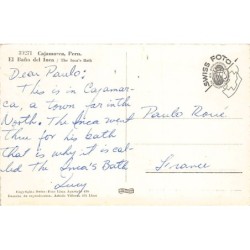 Cajamarca, Peru.
El Baño del Inca / The Inca's Bath
SWISS FOTO
Dear Paulo:
This is in Cajamar-
ca, a town far in the
North. The Inca went
there for his bath
that is why it is cal-
led The Inca's Bath
Lucy
Paulo
France